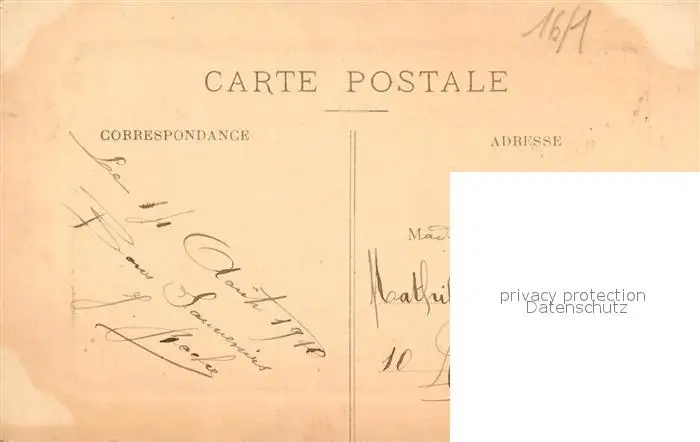 16/1
CARTE POSTALE
CORRESPONDANCE
ADRESSE
Le 1/1 Août 191
Bons Souvenirs
J.
Mad
Mathil
10
privacy protection
Datenschutz